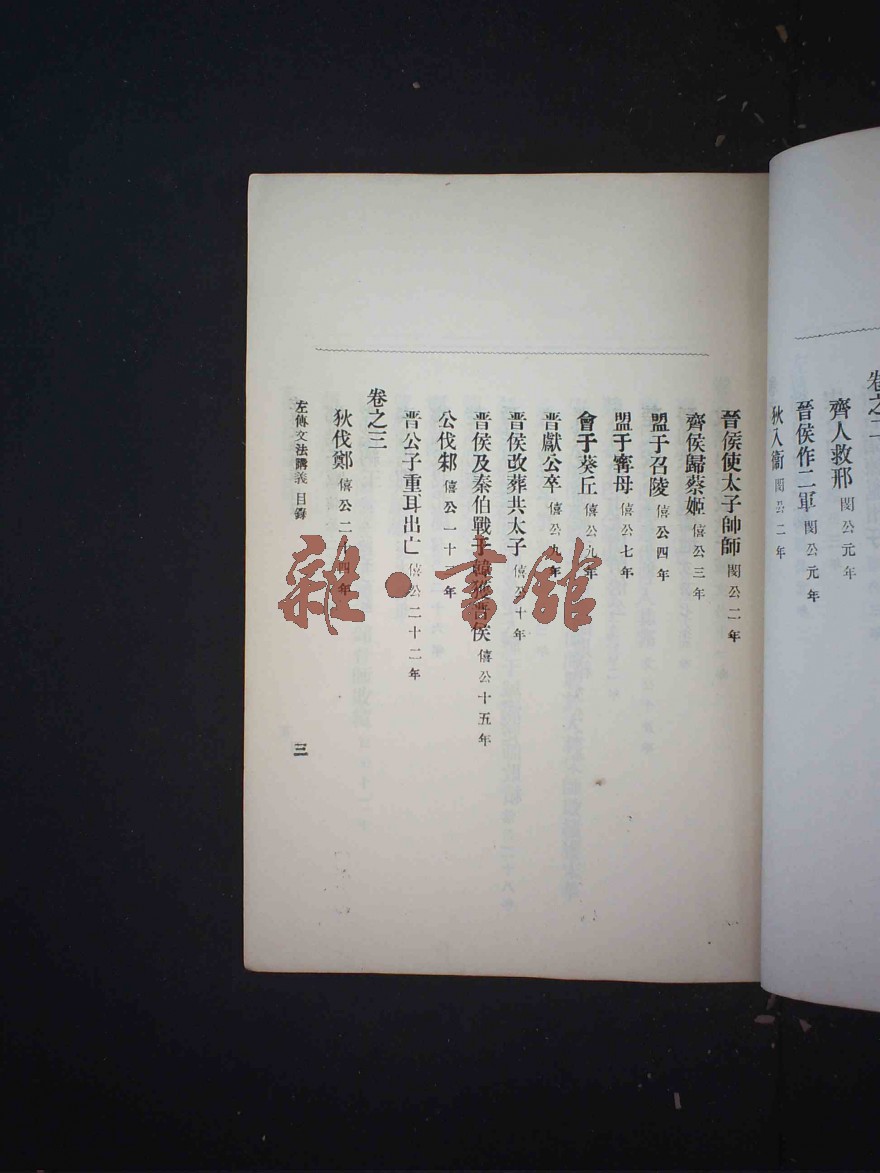 卷之二
齊人救邢 閔公元年
晉侯作二軍 閔公元年
狄入衞 閔公二年
晉侯使太子帥師 閔公二年
齊侯歸蔡姬 僖公三年
盟于召陵 僖公四年
盟于甯母 僖公七年
會于葵丘 僖公九年
晉獻公卒 僖公九年
晉侯改葬共太子 僖公十年
晉侯及秦伯戰于韓獲晉侯 僖公十五年
公伐邾 僖公二十 年
晉公子重耳出亡 僖公二十二年
卷之三
狄伐鄭 僖公二十四年
左傳文法講義 目錄
三
雜·書館